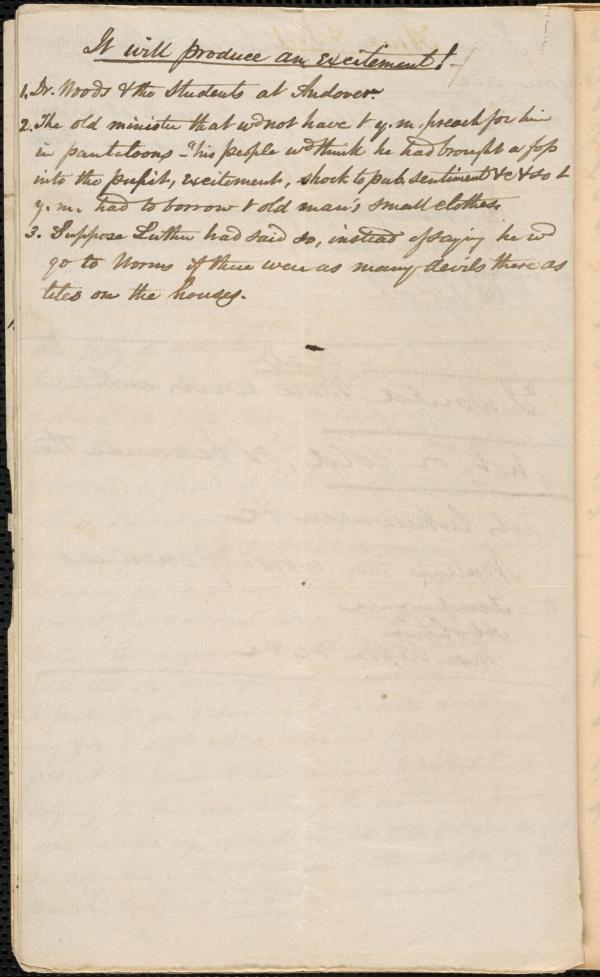 It will produce an excitement!-
1. Dr. Woods & the Students at Andover.
2. The old minister that wd not have t y. m. preach for him
in pantaloons - "his people wd think he had brought a fop
into the pulpit, excitement, shock to pub. sentiment &c & so t
y. m. had to borrow t old man's small clothes.
3. Suppose Luther had said so, instead of saying he wd
go to Worms if there were as many devils there as
tiles on the houses.